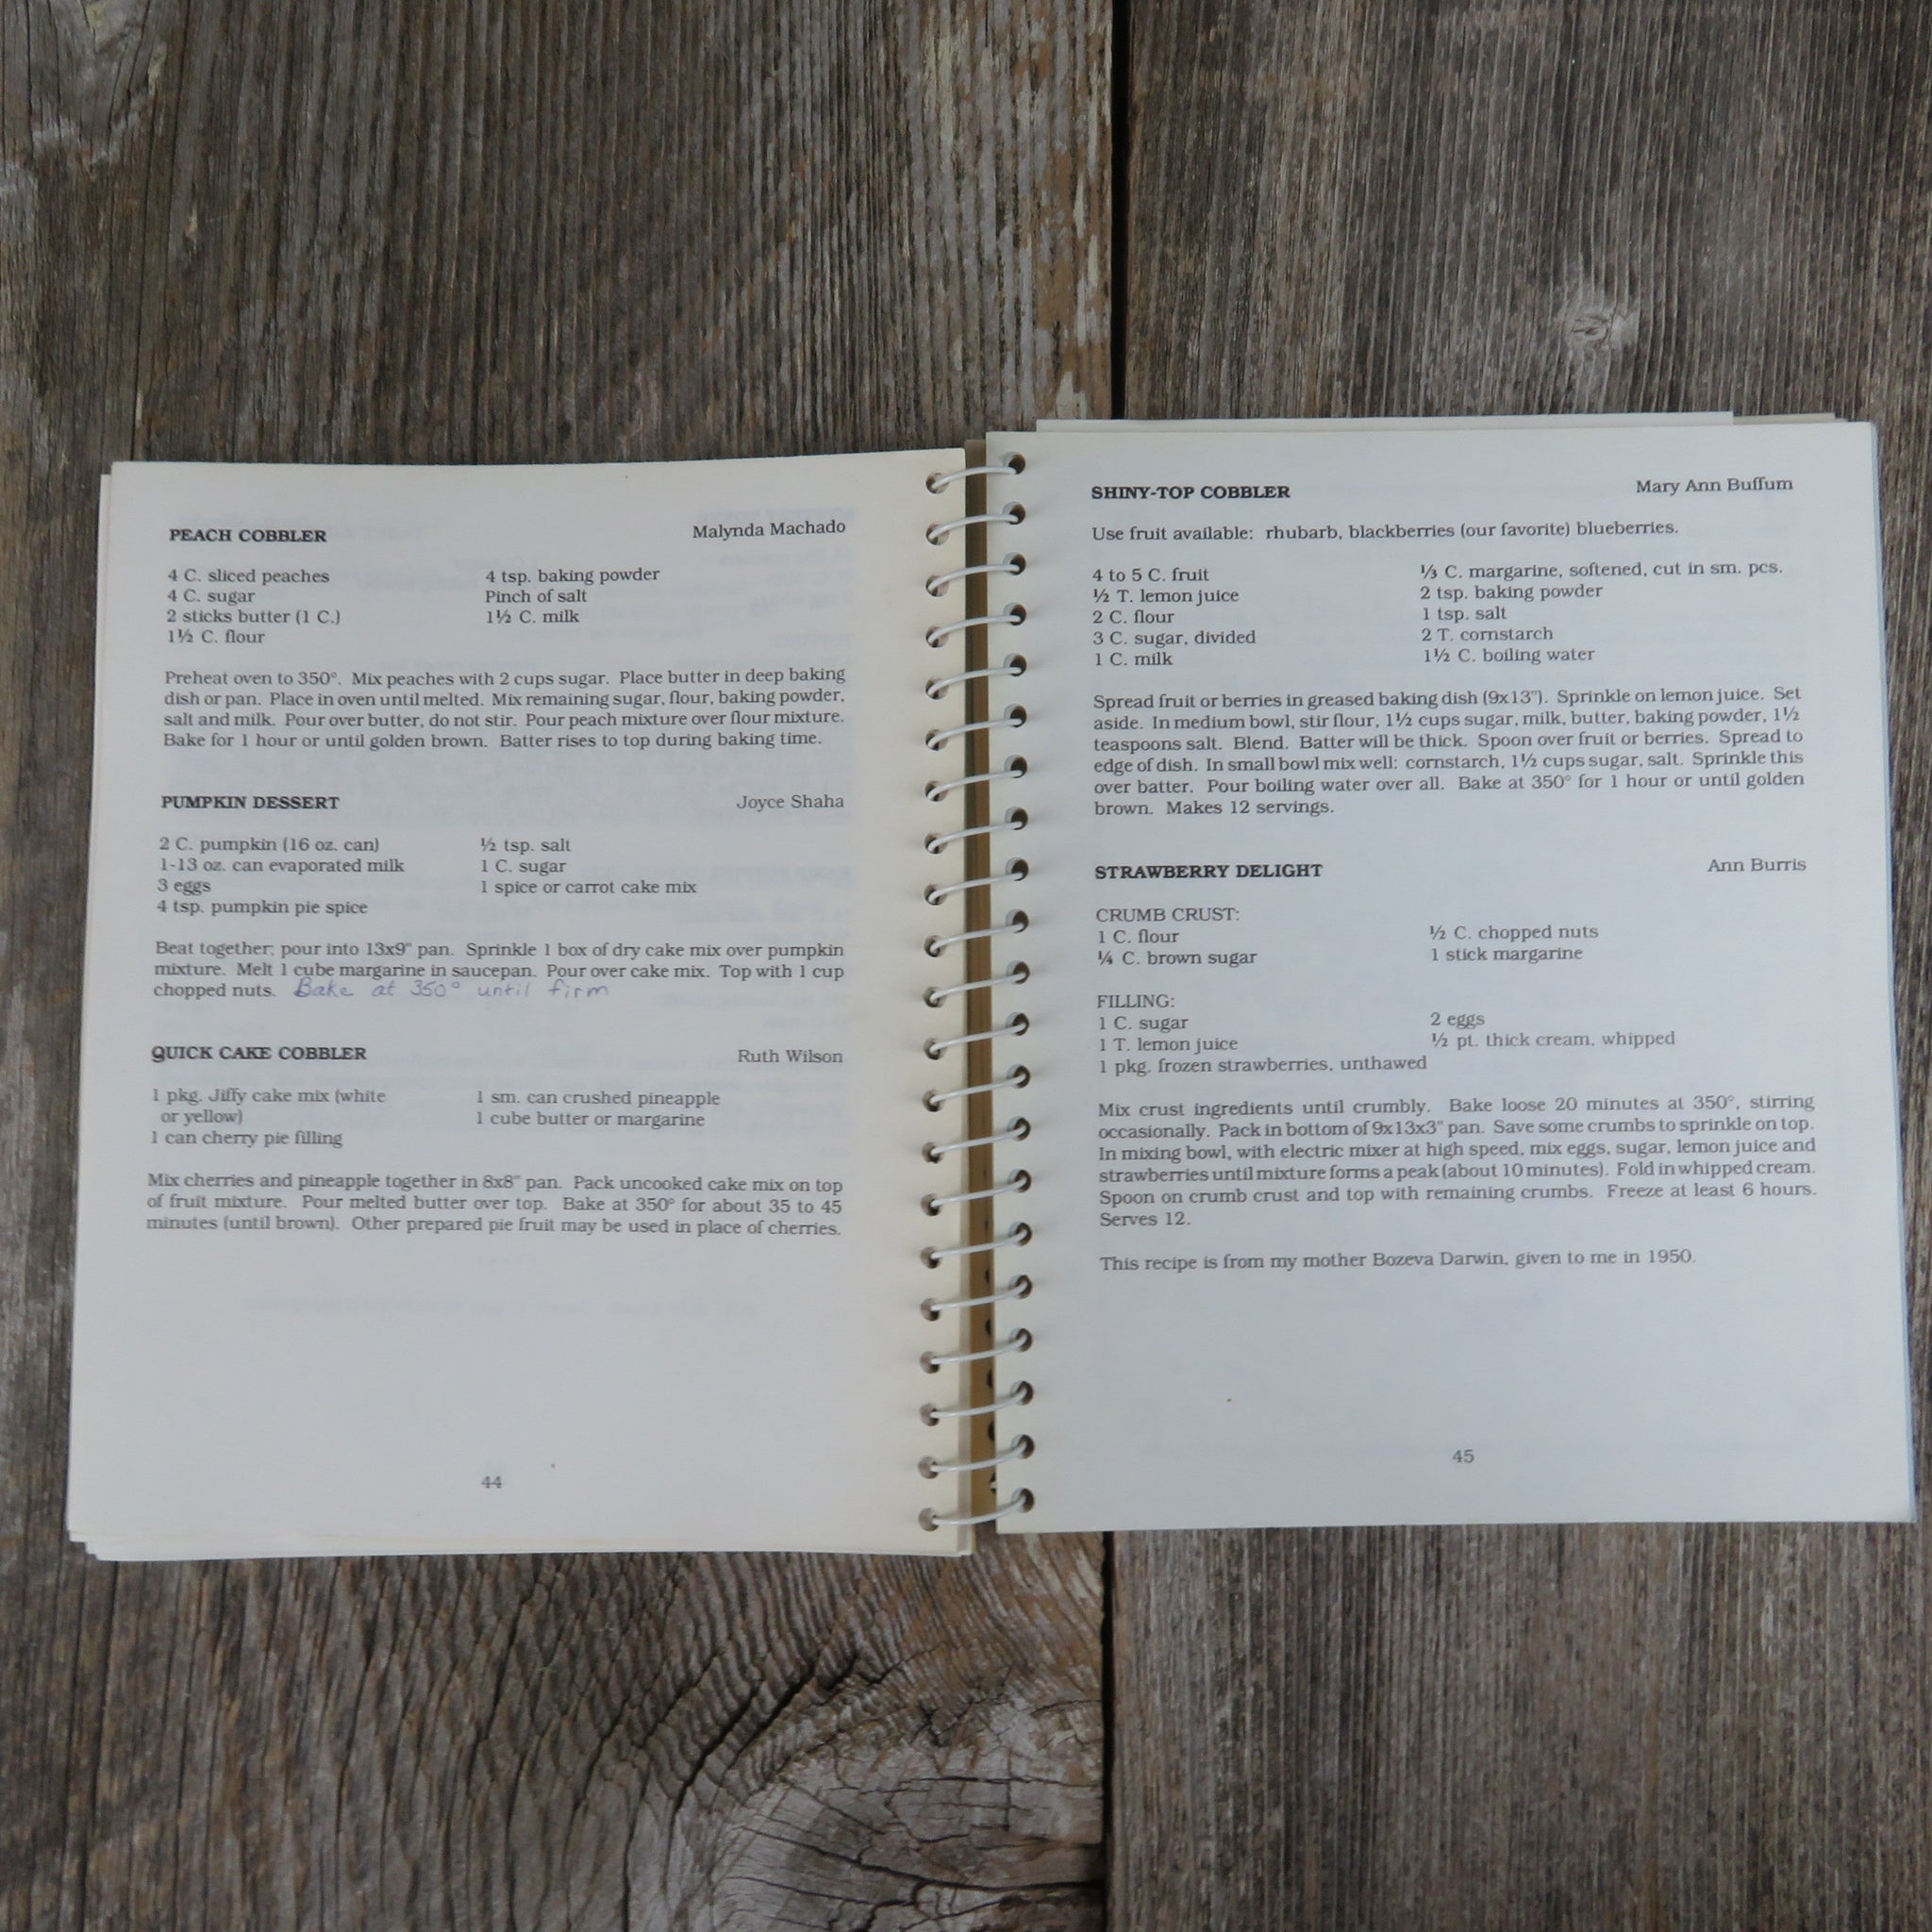 PEACH COBBLER Malynda Machado
4 C. sliced peaches 4 tsp. baking powder
4 C. sugar Pinch of salt
2 sticks butter (1 C.) 1½ C. milk
1½ C. flour
Preheat oven to 350°. Mix peaches with 2 cups sugar. Place butter in deep baking
dish or pan. Place in oven until melted. Mix remaining sugar, flour, baking powder,
salt and milk. Pour over butter, do not stir. Pour peach mixture over flour mixture.
Bake for 1 hour or until golden brown. Batter rises to top during baking time.
PUMPKIN DESSERT Joyce Shaha
2 C. pumpkin (16 oz. can) ½ tsp. salt
1-13 oz. can evaporated milk 1 C. sugar
3 eggs 1 spice or carrot cake mix
4 tsp. pumpkin pie spice
Beat together; pour into 13x9" pan. Sprinkle 1 box of dry cake mix over pumpkin
mixture. Melt 1 cube margarine in saucepan. Pour over cake mix. Top with 1 cup
chopped nuts. Bake at 350° until firm
QUICK CAKE COBBLER Ruth Wilson
1 pkg. Jiffy cake mix (white 1 sm. can crushed pineapple
or yellow) 1 cube butter or margarine
1 can cherry pie filling
Mix cherries and pineapple together in 8x8" pan. Pack uncooked cake mix on top
of fruit mixture. Pour melted butter over top. Bake at 350° for about 35 to 45
minutes (until brown). Other prepared pie fruit may be used in place of cherries.
44
SHINY-TOP COBBLER Mary Ann Buffum
Use fruit available: rhubarb, blackberries (our favorite) blueberries.
4 to 5 C. fruit ⅓ C. margarine, softened, cut in sm. pcs.
½ T. lemon juice 2 tsp. baking powder
2 C. flour 1 tsp. salt
3 C. sugar, divided 2 T. cornstarch
1 C. milk 1½ C. boiling water
Spread fruit or berries in greased baking dish (9x13"). Sprinkle on lemon juice. Set
aside. In medium bowl, stir flour, 1½ cups sugar, milk, butter, baking powder, 1½
teaspoons salt. Blend. Batter will be thick. Spoon over fruit or berries. Spread to
edge of dish. In small bowl mix well: cornstarch, 1½ cups sugar, salt. Sprinkle this
over batter. Pour boiling water over all. Bake at 350° for 1 hour or until golden
brown. Makes 12 servings.
STRAWBERRY DELIGHT Ann Burris
CRUMB CRUST:
1 C. flour ½ C. chopped nuts
¼ C. brown sugar 1 stick margarine
FILLING:
1 C. sugar 2 eggs
1 T. lemon juice ½ pt. thick cream, whipped
1 pkg. frozen strawberries, unthawed
Mix crust ingredients until crumbly. Bake loose 20 minutes at 350°, stirring
occasionally. Pack in bottom of 9x13x3" pan. Save some crumbs to sprinkle on top.
In mixing bowl, with electric mixer at high speed, mix eggs, sugar, lemon juice and
strawberries until mixture forms a peak (about 10 minutes). Fold in whipped cream.
Spoon on crumb crust and top with remaining crumbs. Freeze at least 6 hours.
Serves 12.
This recipe is from my mother Bozeva Darwin, given to me in 1950.
45